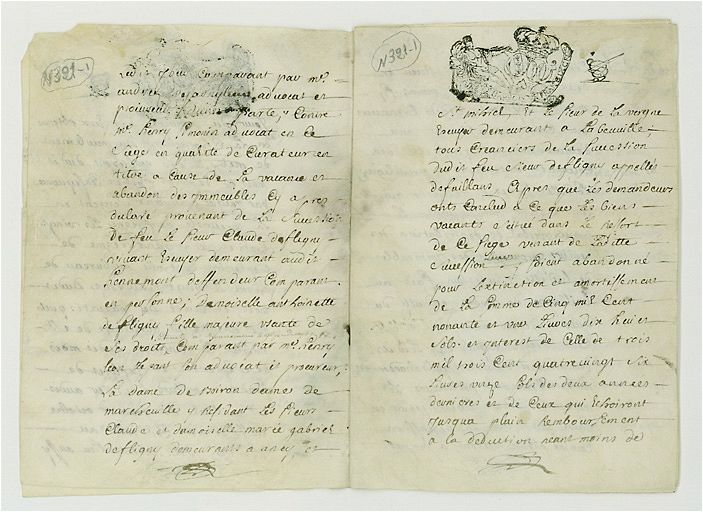 N321-1
Ledit Jour Comparant par mr.
andré advocat en
Contre
mr. henry Simonin advocat en Ce
siege en qualité de Curateur en
titre a Cause de La vacance et
abandon des Immeubles Cy apres
de Claré provenant de La Succession
de feu Le sieur Claude desligny
vivant Escuyer demeurant audit
Sennement deffendeur Comparant
en personne; Demoiselle anthoinette
desfligny fille majeure usante de
ses droits Comparant par mr. henry
son advocat et procureur,
La dame de dame de
y Residant Les sieurs
Claude et damoiselle marie gabriel
desfligny demeurants a ancy et
N321-1
st mihiel, Et Le sieur de La vergne
Escuyer demeurant a Labeuville
tous Creanciers de La succession
dudit feu sieur desfligny appellés
defaillans, Apres que Les demandeurs
onts Conclud a Ce que Les biens
vacants situé dans Le Resort
de Ce siege venant de Laditte
succession soient abandonné
pour L'extinction et amortissement
de La somme de Cinq mil Cent
nonante et un Livres dix huict
sols et interest de Celle de trois
mil trois Cent quatre vingt six
Livres unze sols des deux années
dernieres et de Ceux qui Echoiront
Jusqua plain Remboursement
a La deduction neant moins de